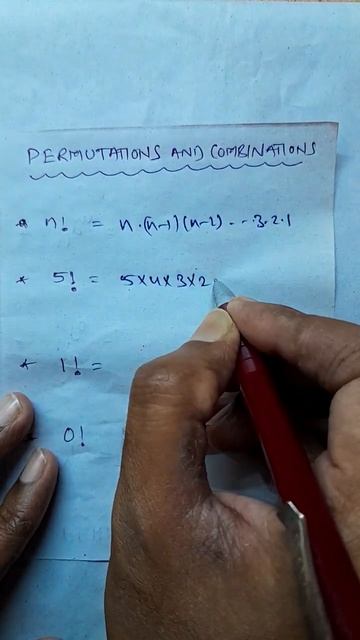 PERMUTATIONS AND COMBINATIONS
* n! = n.(n-1)(n-2)...3.2.1
* 5! = 5x4x3x2
* 1! =
0!